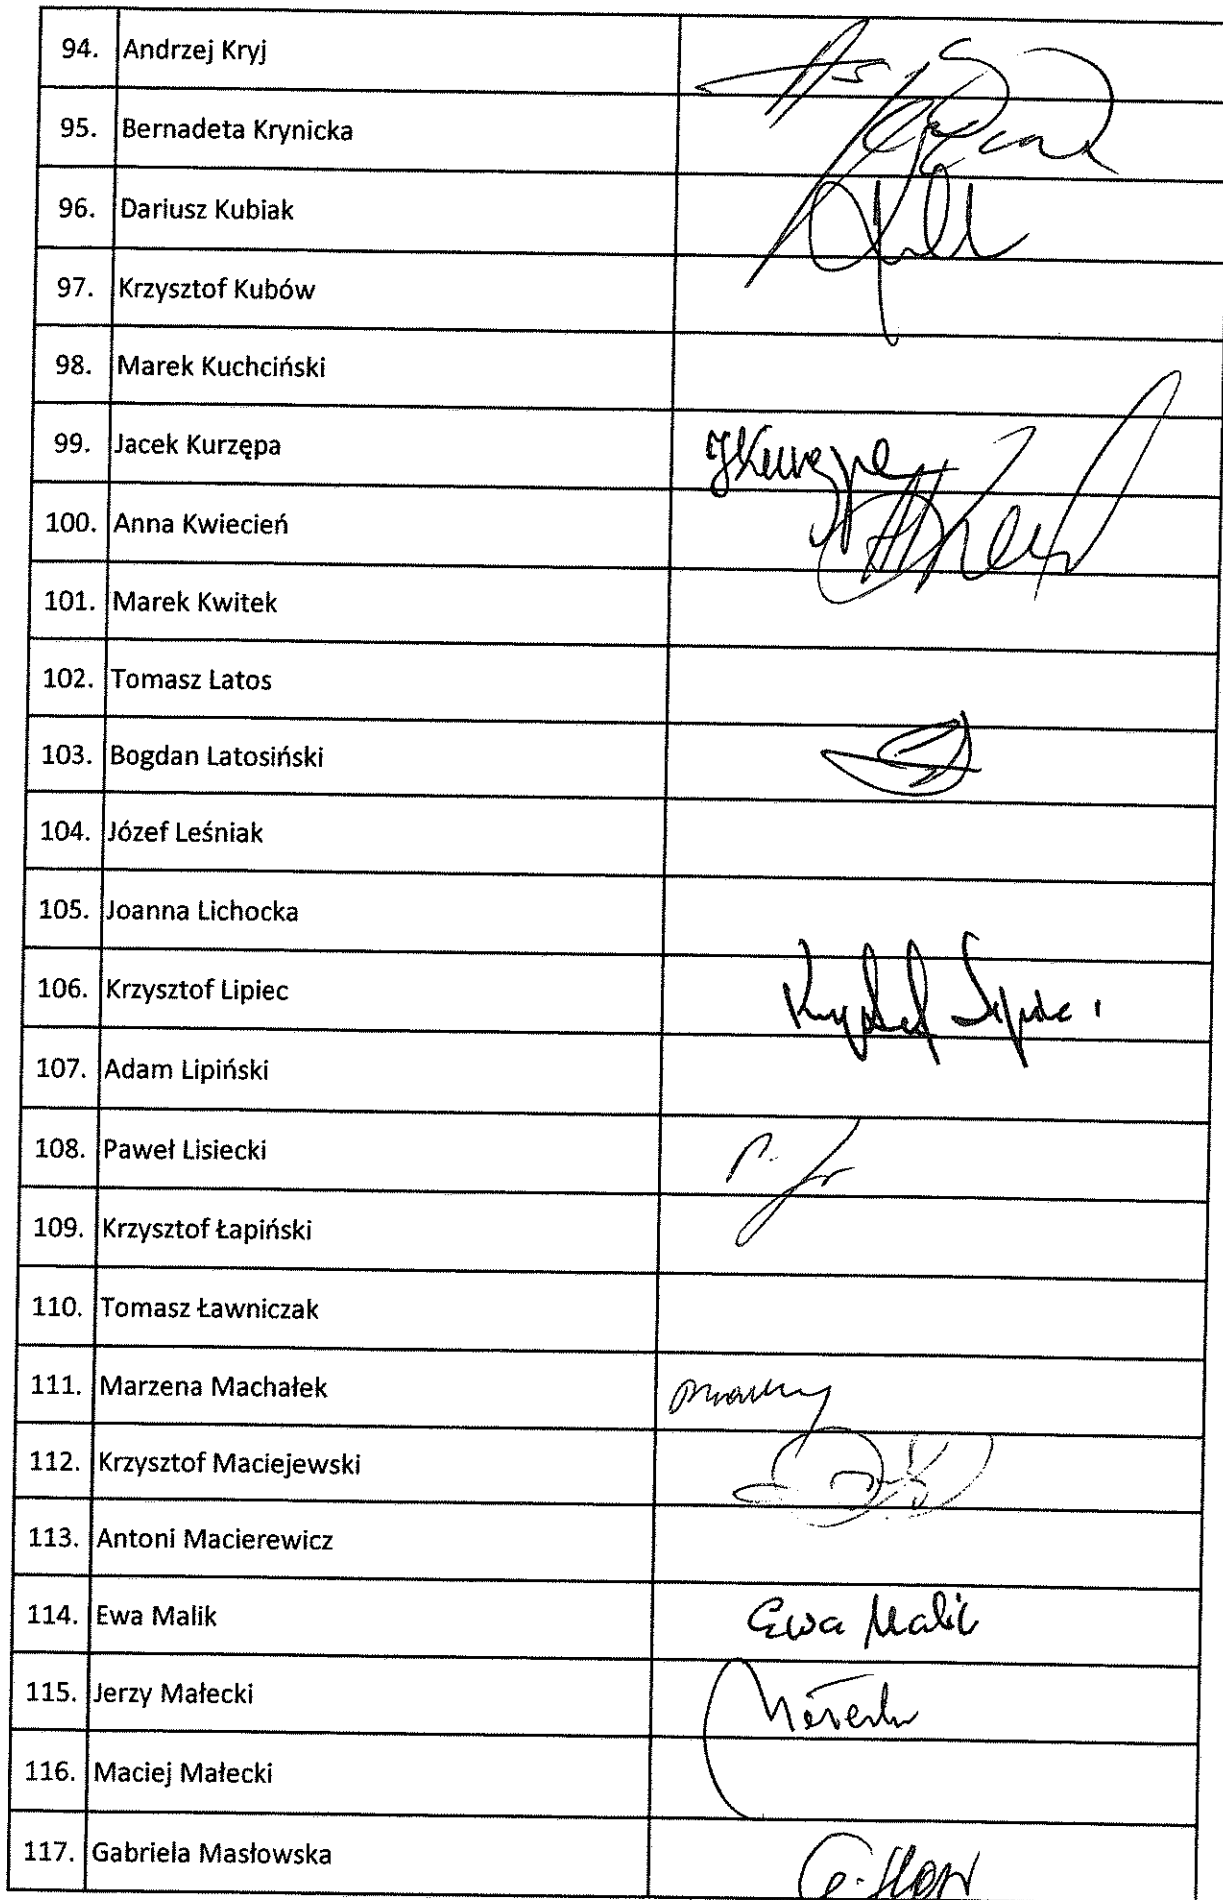 94. Andrzej Kryj
95. Bernadeta Krynicka
96. Dariusz Kubiak
97. Krzysztof Kubów
98. Marek Kuchciński
99. Jacek Kurzępa JKurzępa
100. Anna Kwiecień
101. Marek Kwitek
102. Tomasz Latos
103. Bogdan Latosiński
104. Józef Leśniak
105. Joanna Lichocka
106. Krzysztof Lipiec Krzysztof Lipiec
107. Adam Lipiński
108. Paweł Lisiecki
109. Krzysztof Łapiński
110. Tomasz Ławniczak
111. Marzena Machałek
112. Krzysztof Maciejewski
113. Antoni Macierewicz
114. Ewa Malik Ewa Malik
115. Jerzy Małecki
116. Maciej Małecki
117. Gabriela Masłowska